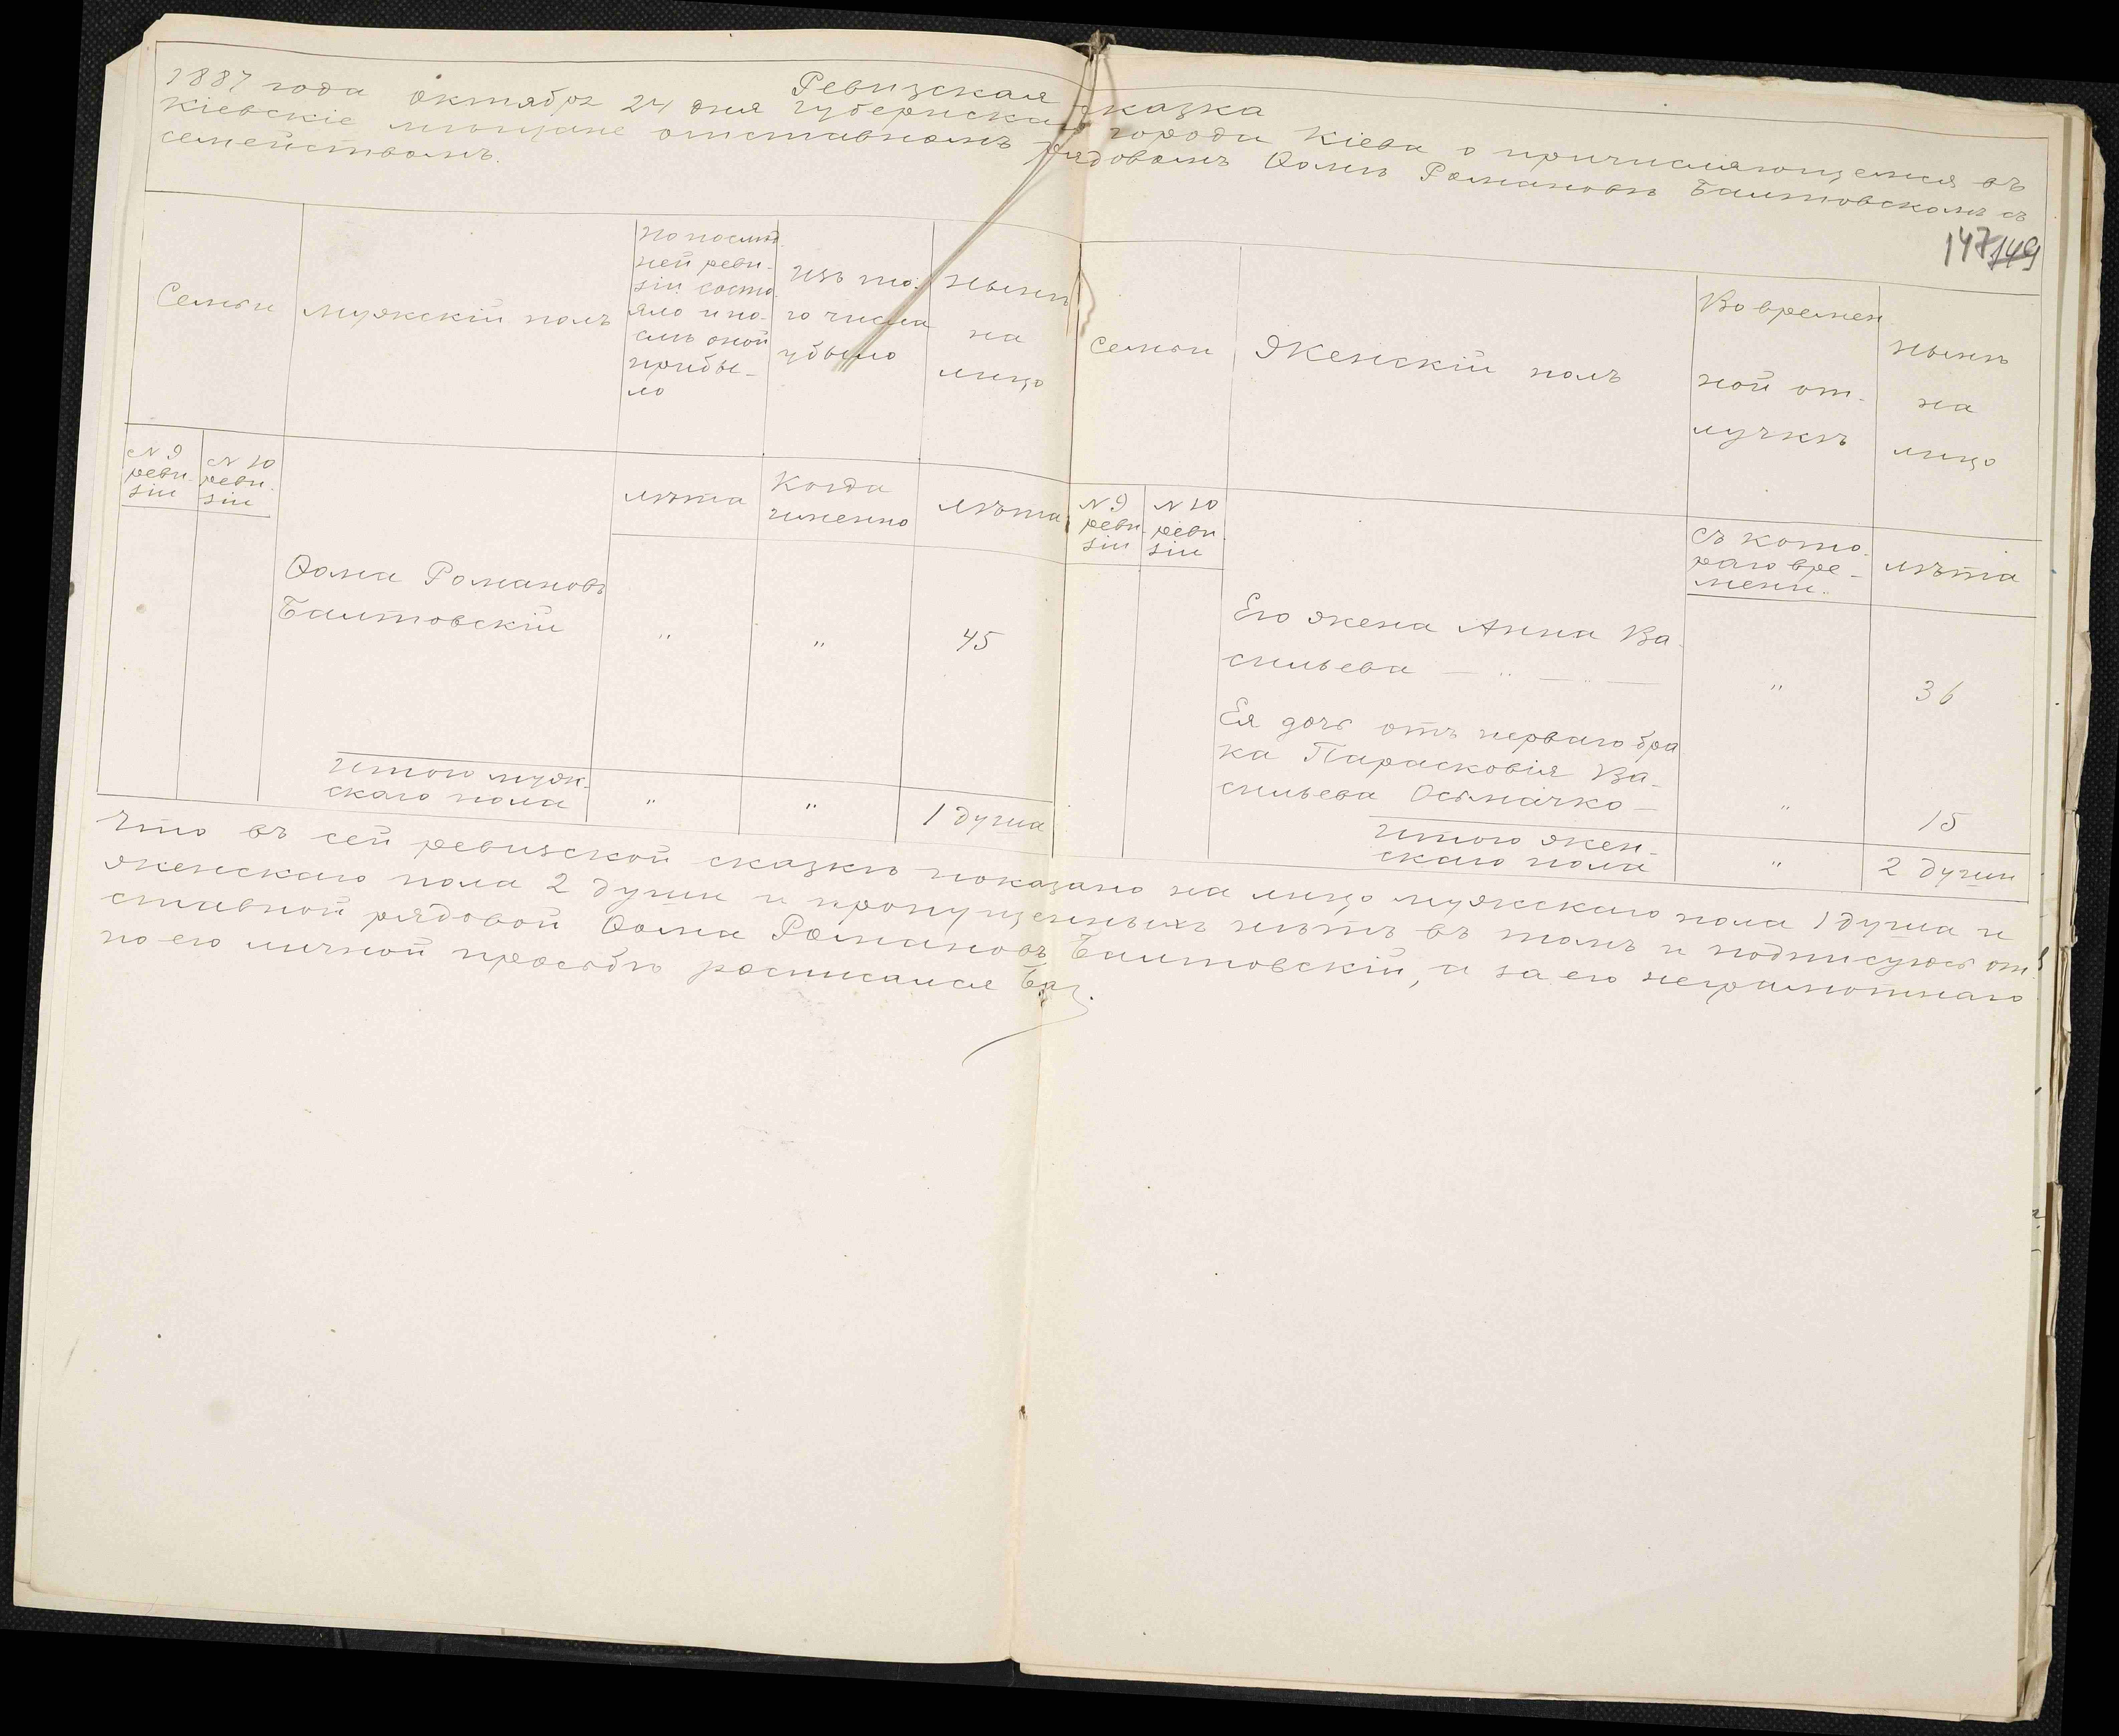 Ревизская сказка
1887 года октября 24 дня губернскаго города Кіева о причисляющемся въ
Кіевскіе мѣщане отставномъ рядовомъ Ѳомѣ Романовѣ Балтовскомъ съ
семействомъ.
147 149
Семьи
Мужскій полъ
По послѣд
ней реви-
зіи состо
яло и по-
слѣ оной
прибы-
ло
Изъ то-
го числа
убыло
Нынѣ
на
лицо
Семьи
Женскій полъ
Во времен
ной от-
лучкѣ
Нынѣ
на
лицо
№ 9
реви-
зіи
№ 10
реви-
зіи
лѣта
Когда
именно
Лѣта
№ 9
реви-
зіи
№ 10
реви-
зіи
Съ кото-
раго вре-
мени.
лѣта
Ѳома Романовъ
Балтовскій " " 45
Итого муж-
скаго пола " " 1 душа
Его жена Анна Ва-
сильева — " — " — " 36
Ея дочь отъ перваго бра
ка Парасковія Ва-
сильева Осьмачко — " 15
Итого жен-
скаго пола " 2 души
Что въ сей ревизской сказкѣ показано на лицо мужскаго пола 1 душа и
женскаго пола 2 души и пропущенныхъ нѣтъ въ томъ и подписуюсь от-
ставной рядовой Ѳома Романовъ Балтовскій, а за его неграмотнаго
по его личной просьбѣ росписался